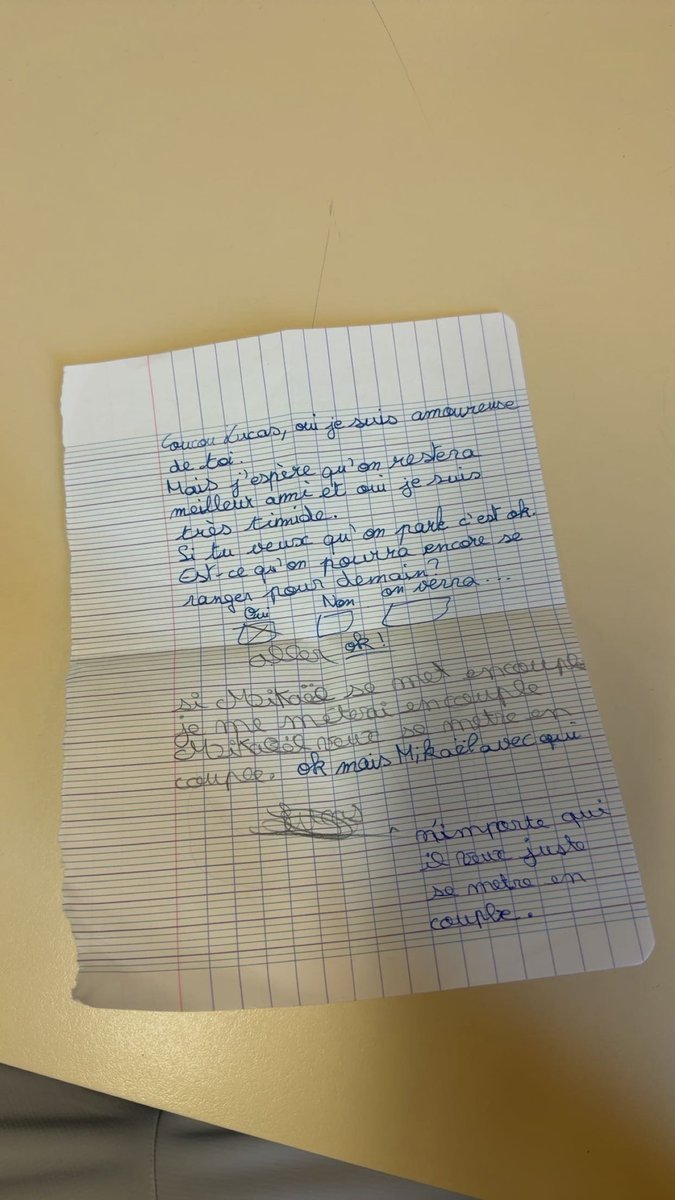 Coucou Lucas, oui je suis amoureuse
de toi.
Mais j'espère qu'on restera
meilleur ami et oui je suis
très timide.
Si tu veux qu'on parle c'est ok.
Est-ce qu'on pourra encore se
ranger pour demain?
Oui Non on verra...
aller ok!
si Mikaël se met encouple
je me meterai encouple
Mikaël veux se metre en
couple. ok mais Mikaël avec qui
n'importe qui
il veux juste
se metre en
couple.